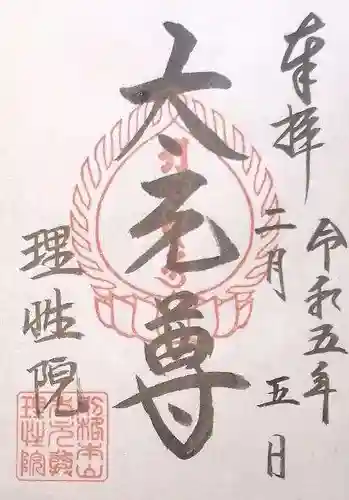 奉拝
令和五年
二月五日
大元尊
理性院